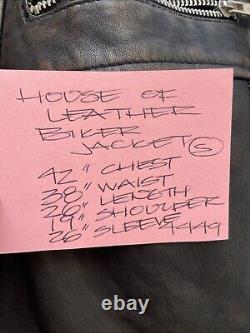 HOUSE OF
LEATHER
BIKER
JACKET (S)
42" CHEST
38" WAIST
26" LENGTH
19" SHOULDER
26" SLEEVE 4449